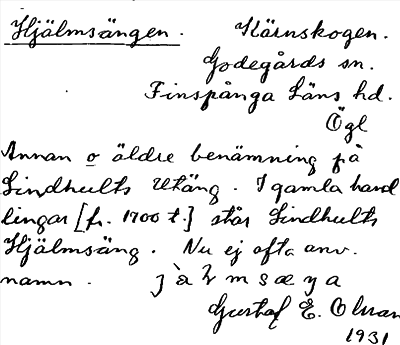 Hjälmsängen. Kärnskogen.
Godegårds sn.
Finspånga Läns hd.
Ögl
Annan o äldre benämning på
Lindhults Utäng. I gamla hand
lingar [fr. 1700 t.] står Lindhults
Hjälmsäng. Nu ej ofta anv.
namn.
Gustaf E. Olsson
1931